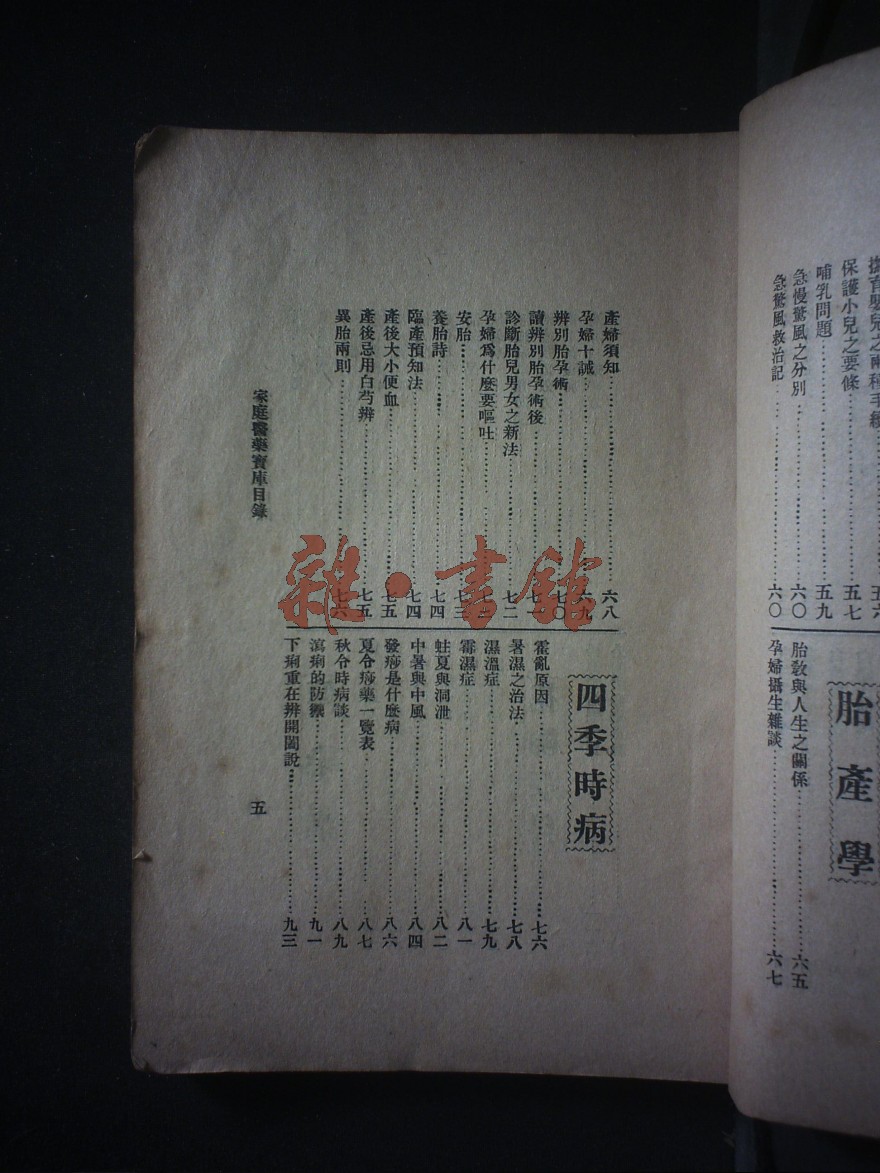 撫育嬰兒之兩種手續 五六
保護小兒之要條 五七
哺乳問題 五九
急慢驚風之分別 六〇
急驚風救治記 六〇
胎產學
胎教與人生之關係 六五
孕婦攝生雜談 六七
產婦須知 六八
孕婦十誡 六九
辨別胎孕術 七〇
讀辨別胎孕術後 七一
診斷胎兒男女之新法 七二
孕婦爲什麼要嘔吐
安胎 七三
養胎詩 七四
臨產預知法 七四
產後大小便血 七五
產後忌用白芍辨 七五
異胎兩則 七六
四季時病
霍亂原因 七六
暑濕之治法 七八
濕溫症 七九
霉濕症 八一
蛀夏與洞泄 八二
中暑與中風 八四
發痧是什麼病 八六
夏令痧藥一覽表 八七
秋令時病談 八九
瀉痢的防禦 九一
下痢重在辨開闔說 九三
家庭醫藥寶庫目錄
五
雜·書館